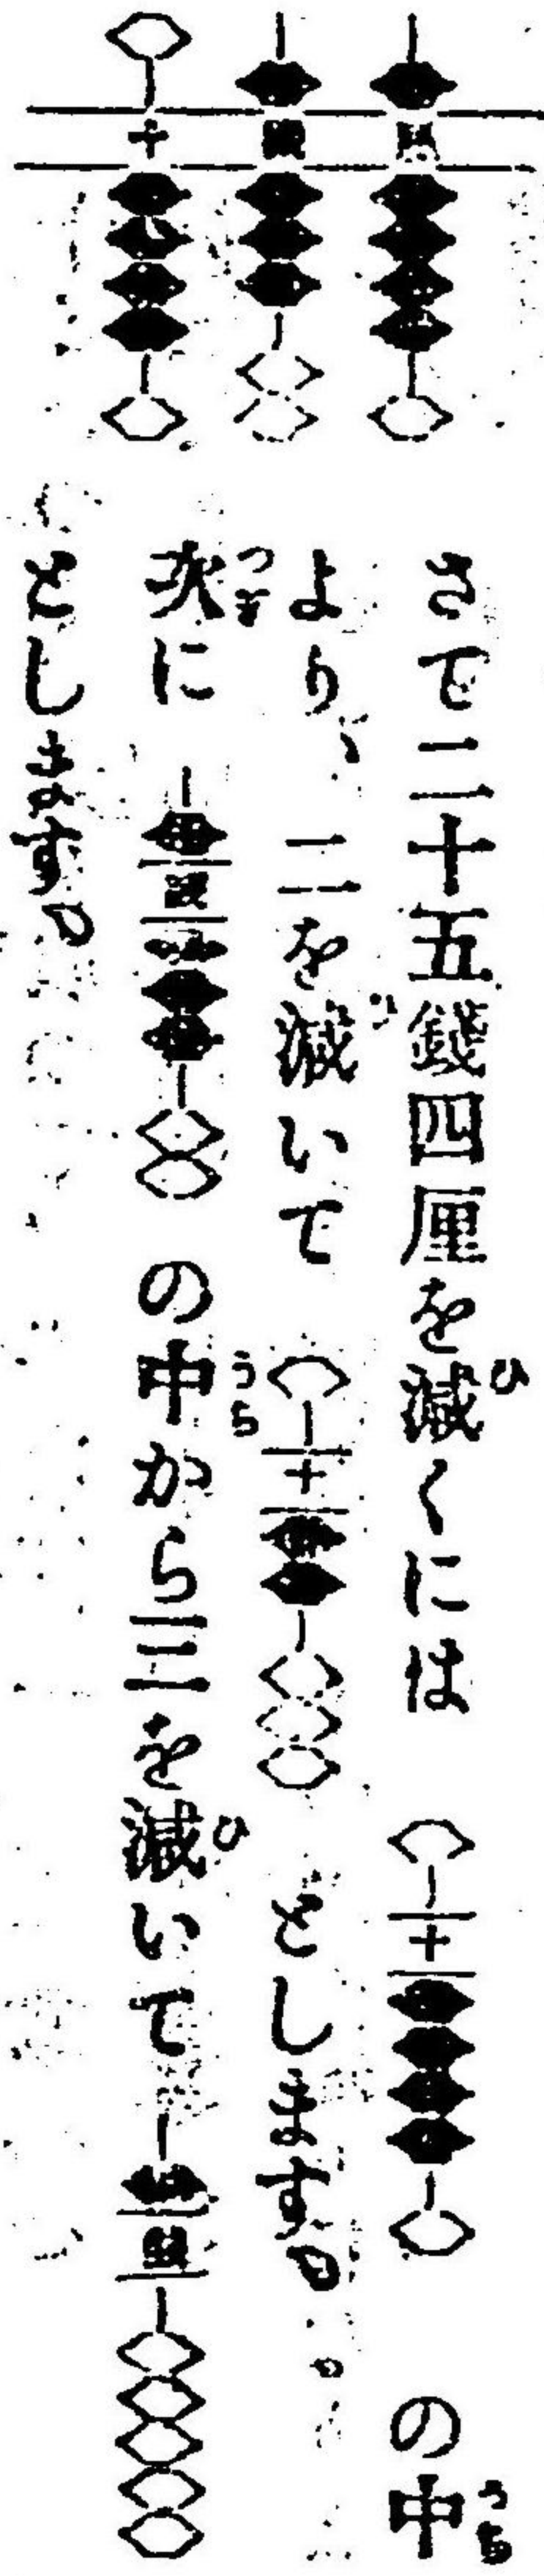 十
さて二十五錢四厘を減くには 十 の中
より、二を減いて 十 とします。
次に 錢 の中から三を減いて 錢
とします。